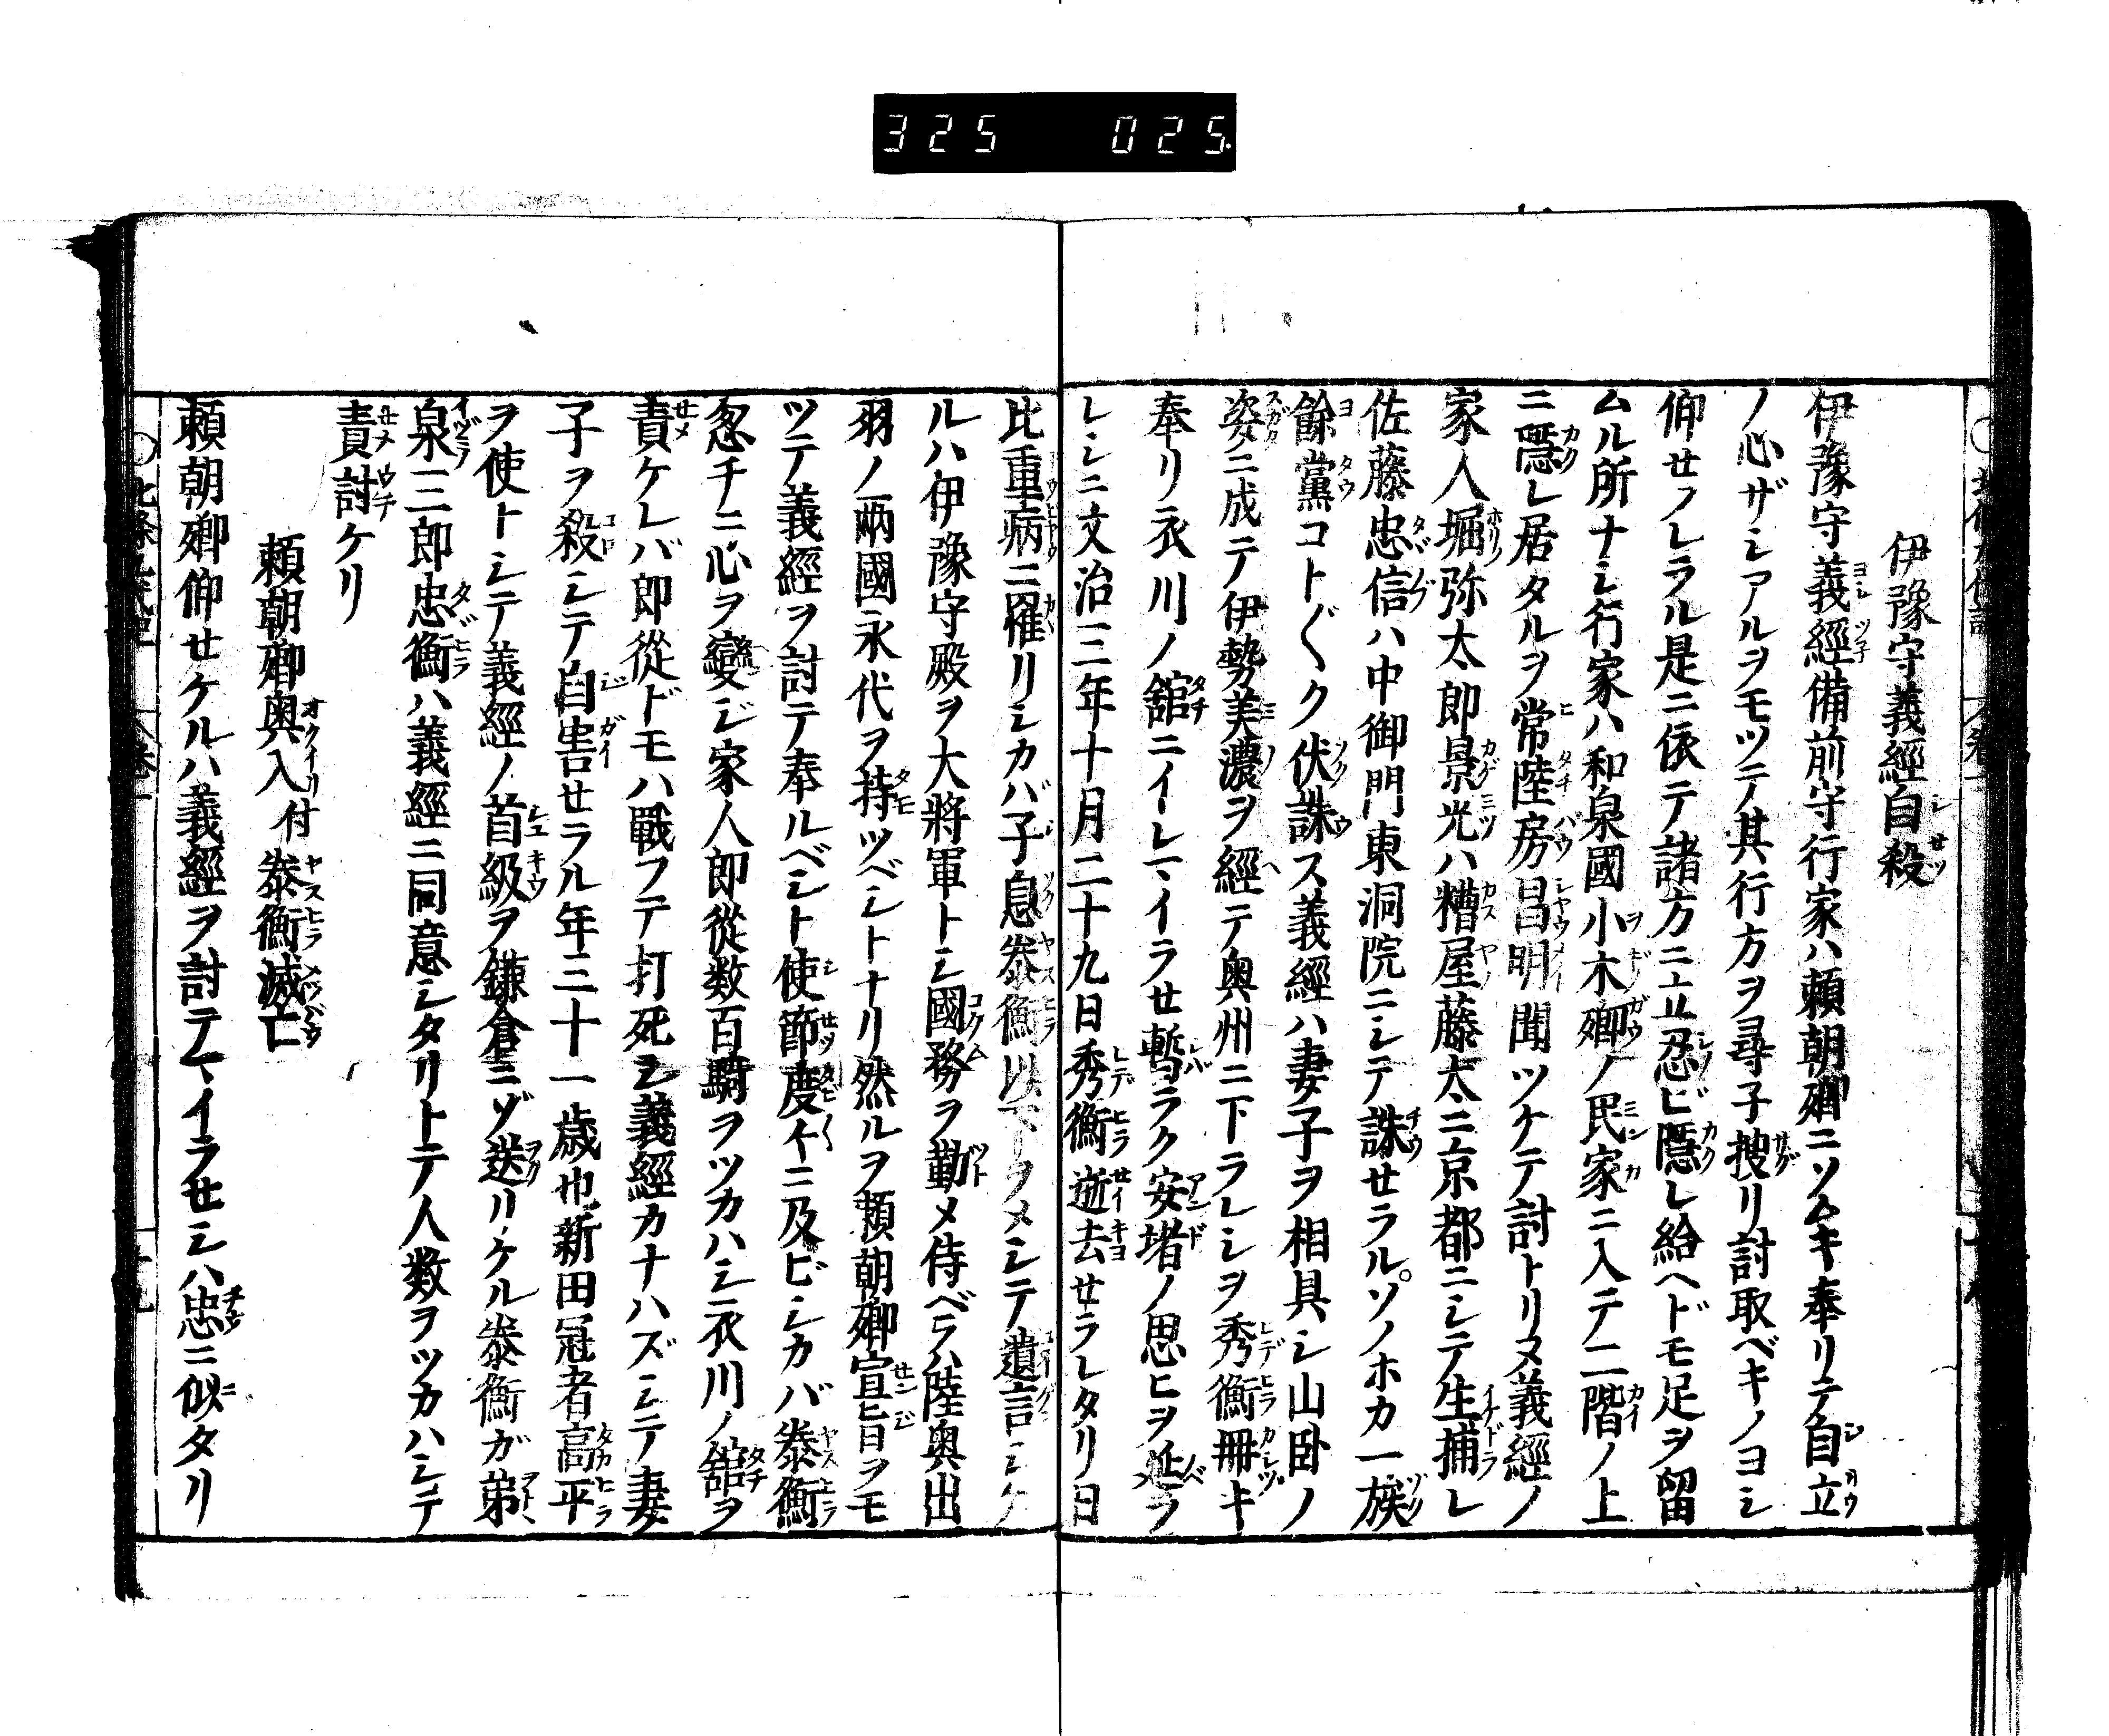 325 025.
伊豫守義經自殺
伊豫守義經備前守行家ハ頼朝卿ニソムキ奉リテ自立
ノ心ザシアルヲモツテ其行方ヲ尋子捜リ討取ベキノヨシ
仰セフレラル是ニ依テ諸方ニ立忍ビ隱レ給ヘドモ足ヲ留
ムル所ナシ行家ハ和泉國小木郷ノ民家ニ入テ二階ノ上
ニ隱レ居タルヲ常陸房昌明聞ツケテ討トリヌ義經ノ
家人堀弥太郎景光ハ糟屋藤太ニ京都ニシテ生捕レ
佐藤忠信ハ中御門東洞院ニシテ誅セラル。ソノホカ一族
餘黨コト〲ク伏誅ス義經ハ妻子ヲ相具シ山臥ノ
姿ニ成テ伊勢美濃ヲ經テ奥州ニ下ラレシヲ秀衡冊キ
奉リ衣川ノ舘ニイレマイラせ暫ラク安堵ノ思ヒヲ延ラ
レシニ文治三年十月二十九日秀衡逝去せラレタリ日
比重病ニ罹リシカバ子息泰衡以下ヲメシテ遺言シケ
ルハ伊豫守殿ヲ大將軍トシ國務ヲ勤メ侍ベラハ陸奥出
羽ノ兩國永代ヲ持ツベシトナリ然ルヲ頼朝卿宣旨ヲモ
ツテ義經ヲ討テ奉ルベシト使節度々ニ及ビシカバ泰衡
忽チニ心ヲ變ジ家人郎從数百騎ヲツカハシ衣川ノ舘ヲ
責ケレバ郎從ドモハ戰フテ打死シ義經カナハズシテ妻
子ヲ殺シテ自害せラル年三十一歳也新田冠者高平
ヲ使トシテ義經ノ首級ヲ鎌倉ニゾ送リケル泰衡ガ弟
泉三郎忠衡ハ義經ニ同意シタリトテ人数ヲツカハシテ
責討ケリ
頼朝卿奥入付泰衡滅亡
頼朝卿仰せケルハ義經ヲ討テマイラせシハ忠ニ似タリ